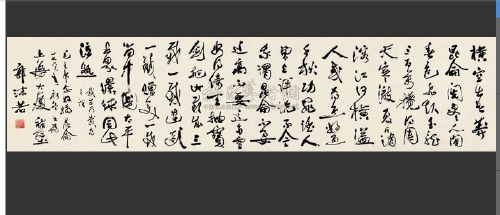 横空出世莽
昆仑阅尽人间
春色飞起玉龙
三百万搅得周
天寒彻夏日消
溶江河横溢
人或为鱼鳖
千秋功罪谁人
曾与评说而今
我谓昆仑不要
这高不要这多雪
安得倚天抽宝
剑把汝裁为三
截一截遗欧
一截赠美一截
留中國太平
世界环球同
此凉热
毛主席念奴娇昆仑
上海大厦补壁
郭沫若